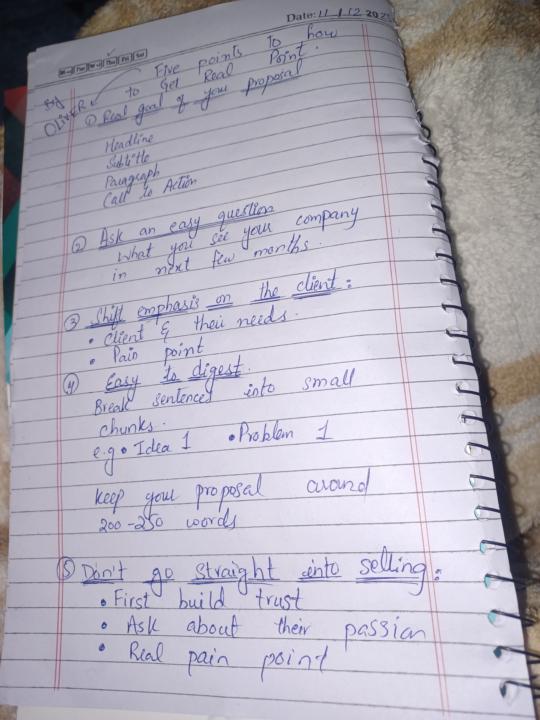 Date: 11/12 202
Mon Tue Wed Thu Fri Sat
By OLIVER
Five points to how
to Get Real Point.
① Real goal of your proposal
Headline
Subtitle
Paragraph
Call to Action
② Ask an easy question
What you see your company
in next few months.
③ Shift emphasis on the client:
• Client & their needs.
• Pain point
④ Easy to digest.
Break sentences into small
chunks.
e.g • Idea 1 • Problem 1
Keep your proposal around
200-250 words
⑤ Don't go straight into selling:
• First build trust
• Ask about their passion
• Real pain point